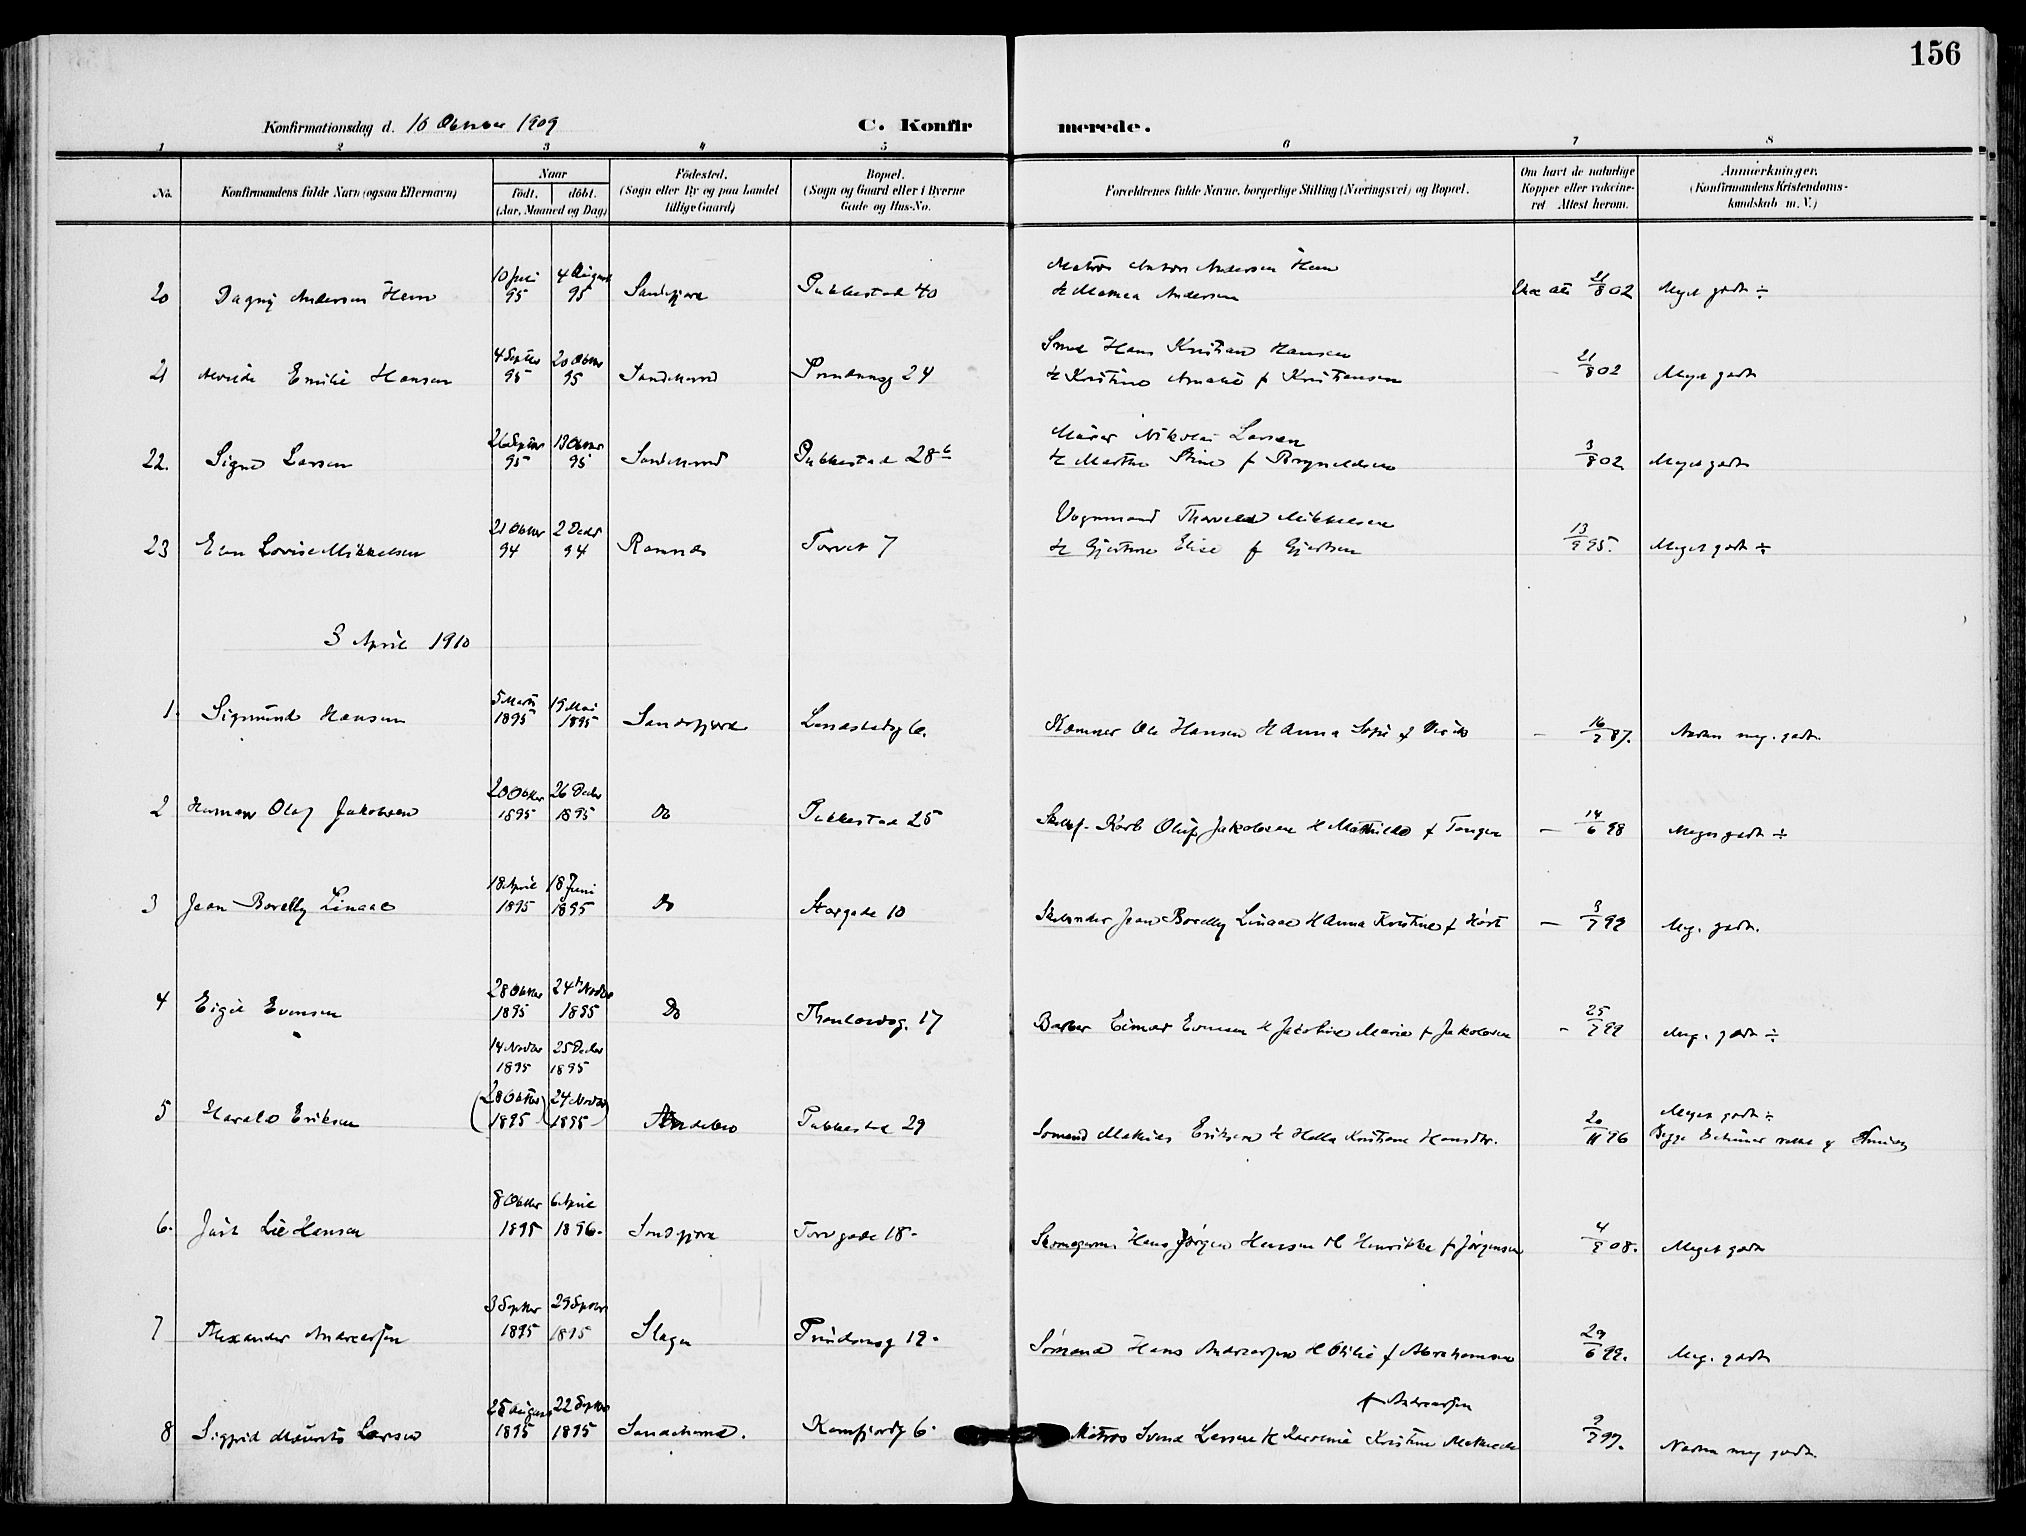 156
Konfirmationsdag d. 10 Oktober 1909
C. Konfirmerede.
1 2 3 4 5 6 7 8
No. Konfirmandens fulde Navn (ogsaa Efternavn) Naar födt. döbt. (Aar, Maaned og Dag) Födested. (Sogn eller By og paa Landet tillige Gaard) Bopæl. (Sogn og Gaard eller i Byerne Gade og Hus-No. Forældrenes fulde Navne, borgerlige Stilling (Næringsvei) og Bopæl. Om havt de naturlige Kopper eller vakcineret. Attest herom. Anmærkninger. (Konfirmandens Kristendomskundskab m. V.)
20 Dagny Andersen Hem 10 Juli 95 4 August 95 Sandefjord Pukkestad 40 Matros Anton Andersen Hem
& Andersen 21/8 02 Meget godt ÷
21 Emilie Hansen 4 Septbr 95 20 Oktbr 95 Sandeherred 24 Smed Hans Kristian Hansen
& Kristine Amalie f Kristiansen 21/8 02 Meget godt
22. Signe Larsen 26 Septbr 95 13 Oktbr 95 Sandeherred Pukkestad 28 b Murer Nikolai Larsen
& Marthe Stine f Brynildsen 3/8 02 Meget godt
23 Lovise Mikkelsen 21 Oktbr 94 2 Decbr 94 Ramnes Torvet 7 Vognmand Thorvald Mikkelsen
& Gjertine Elise f Gjertsen 13/9 95. Meget godt ÷
3 April 1910
1. Sigmund Hansen 5 Marts 1895 19 Mai 1895 Sandefjord Landstadsg 6. Kæmner Ole Hansen & Anna Sofie f - 87. Næsten meg. godt.
2 Herman Olaf Jakobsen 20 Oktbr 1895 26 Decbr 1895 Do Pukkestad 25 Karl Oluf Jakobsen & Mathilde f Tangen — 14/6 98 Meget godt ÷
3 Jean Borelly Linaae 18 April 1895 18 Juni 1895 Do Storgade 10 Jean Borelly Linaae & Anna Kristine f Høst — 99 Meg. godt.
4 Eigil Evensen 28 Oktbr 1895 24 Novbr 1895 Do 17 Barber Einar Evensen & Jakobine Marie f Jakobsen - 25/7 99 Meg. godt ÷
14 Novbr 1895 25 Decbr 1895
5 Harald Eriksen (28 Oktbr 1895) (24 Novbr 1895) Andebu Pukkestad 29 Sømand Mathias Eriksen & Helle Kristiane Hansdtr. 20/11 96 Meget godt ÷
Begge
6. Just Lie Hansen 8 Oktbr 1895 6 April 1896. Sandefjord Torvgade 18. Skomagerm. Hans Jørgen Hansen & Henrikke f Jørgensen 4/9 08. Meget godt
7 Alexander Andreassen 3 Septbr 1895 29 Septbr 1895 Slagen 19. Sømand Hans Andreassen & Otilie f Abrahamsen 29/6 99. Meg. godt
f Andreassen
8 Sigfrid Maurits Larsen 25 August 1895 22 Septbr 1895 Sandeherred. Kamfjordg 6. Matros Svend Larsen & Karoline Kristine 9/7 97. Næsten meg godt.